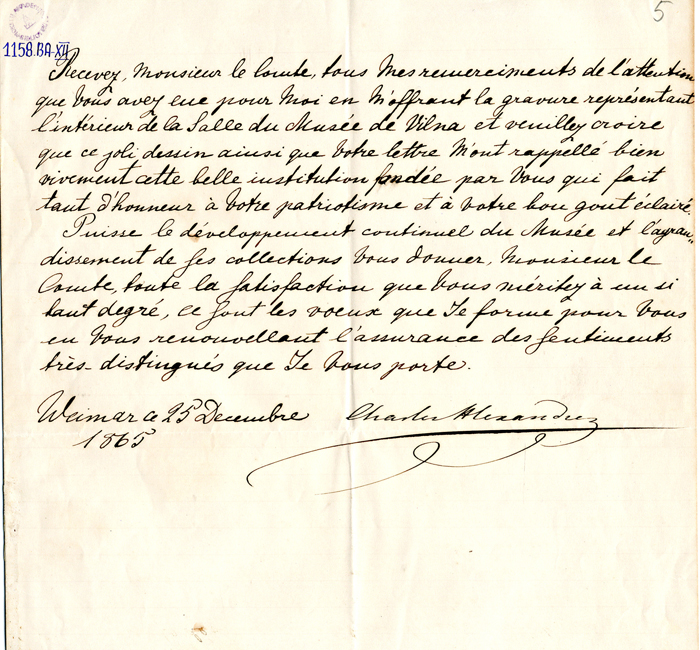 5
1158.BA.XII
Recevez, Monsieur le Comte, tous Mes remerciments de l'attention
que Vous avez eue pour Moi en M'offrant la gravure représentant
l'intérieur de la Salle du Musée de Vilna et veuillez croire
que ce joli dessin ainsi que Votre lettre M'ont rappellé bien
vivement cette belle institution fondée par Vous qui fait
tant d'honneur à Votre patriotisme et à Votre bon gout éclairé.
Puisse le développement continuel du Musée et l'agran„
dissement de Ses collections Vous donner, Monsieur le
Comte, toute la satisfaction que Vous méritez à un si
haut degré, ce sont les voeux que Je forme pour Vous
en Vous renouvellant l'assurance des Sentiments
très-distingués que Je Vous porte.
Weimar ce 25 Decembre
1865
Charles Alexandre